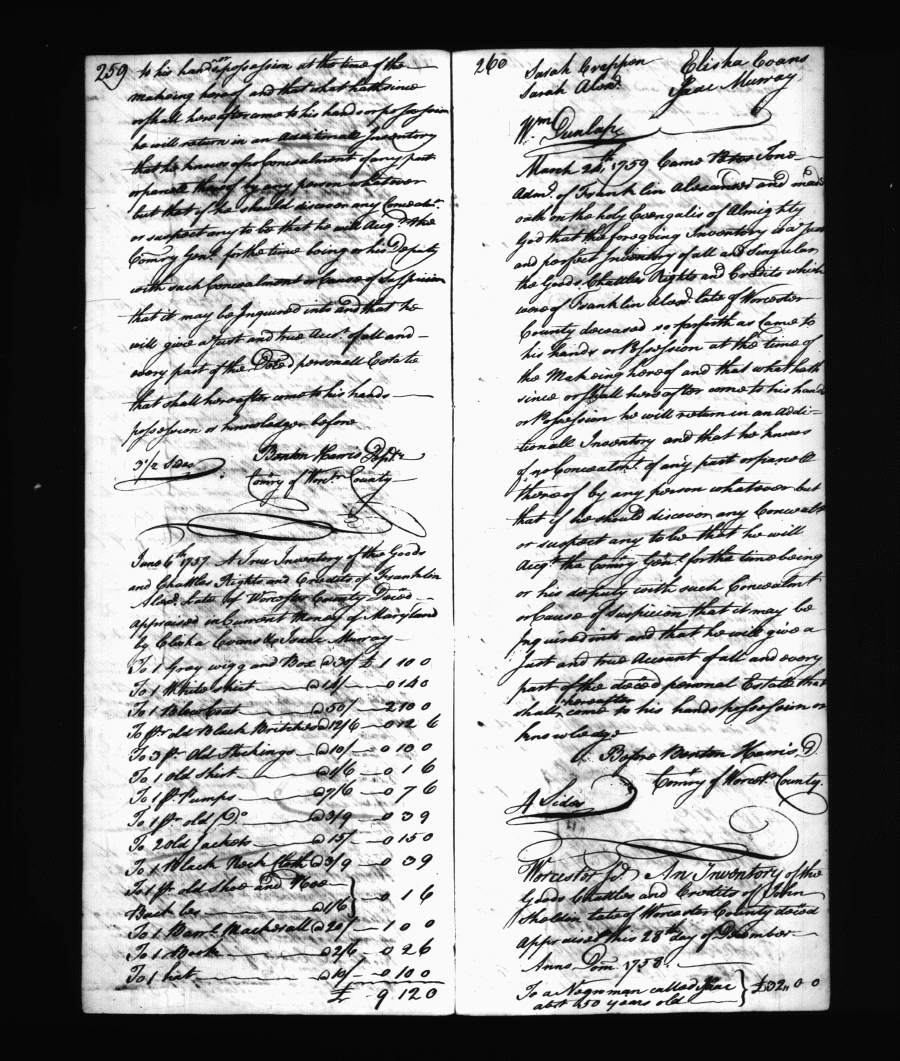 259
to his hands or possession at the time of the
makeing hereof and that what hath since
or shall hereafter come to his hands or possession
he will return in an Additionall Inventory
that he knows of no Concealment of any part
or parcele thereof by any person whatever
but that if he should discover any Concealmt.
or suspect any to be that he will Acqt. the
Comry Genl. for the time being or his Deputy
with such Concealment or Cause of Suspicion
that it may be Inquired into and that he
will give a Just and true Acct. of all and
every part of the Deced personall Estate
that shall hereafter come to his hands
possession or knowledge before
3 1/2 Sides
Benton Harris Depty
Comry of Worcr. County
June 6th 1757. A True Inventory of the Goods
and Chattles Rights and Credits of Franklin
Alexd. Late of Worcester County Deced
appraised in Current Money of Maryland
by Elisha Evans & Isaac Murray
To 1 Gray wigg and Box @ 30/ £ 1 10 0
To 1 White shirt @ 14/ 0 14 0
To 1 Blew Coat @ 50/ 2 10 0
To 1 pr old Black Britches @ 12/6 0 12 6
To 3 pr. Old Stockings @ 10/ 0 10 0
To 1 old shirt @ 1/6 0 1 6
To 1 pr Pumps @ 7/6 0 7 6
To 1 pr old Do @ 3/9 0 3 9
To 2 old Jackets @ 15/ 0 15 0
To 1 Black Neck Cloth @ 3/9 0 3 9
To 1 pr. old Shoe and Knee
Buckles @ 1/6 0 1 6
To 1 Barrl. Mackerall @ 20/ 1 0 0
To 1 Book @ 2/6 0 2 6
To 1 hat @ 10/ 0 10 0
£ 9 12 0
260
Sarah Creppon
Sarah Alexd.
Elisha Evans
Isaac Murray
Wm Dunlap
March 24th, 1759 Came
Admr. of Franklin Alexander and made
oath on the holy Evengalis of Almighty
God that the foregoing Inventory is a just
and perfect Inventory of all and Singular
the Goods Chattles Rights and Credits which
were of Franklin Alexd. late of Worcester
County deceased so farforth as Came to
his hands or Possession at the time of
the Makeing hereof and that what hath
since or shall hereafter come to his hands
or Possession he will return in an Addi-
tionall Inventory and that he knows
of no Concealmt. of any part or parcell
thereof by any person whatever but
that if he should discover any Concealt
or suspect any to be that he will
Acqt. the Comry Genl. for the time being
or his deputy with such Concealmt
or Cause of Suspicion that it may be
Inquired into and that he will give a
Just and true Account of all and every
part of the deced personal Estate that
shall hereafter come to his hands possession or
knowledge
Before Benton Harris, D
Comry of Worcetr. County
4 Sides
Worcester Sct. An Inventory of the
Goods Chattles and Credits of John
Sheldin late of Worcester County deced
Appraised this 28th day of December
Anno Dom. 1758.
To a Negro man called Isaac
abt. 50 years old £32,, 0 0